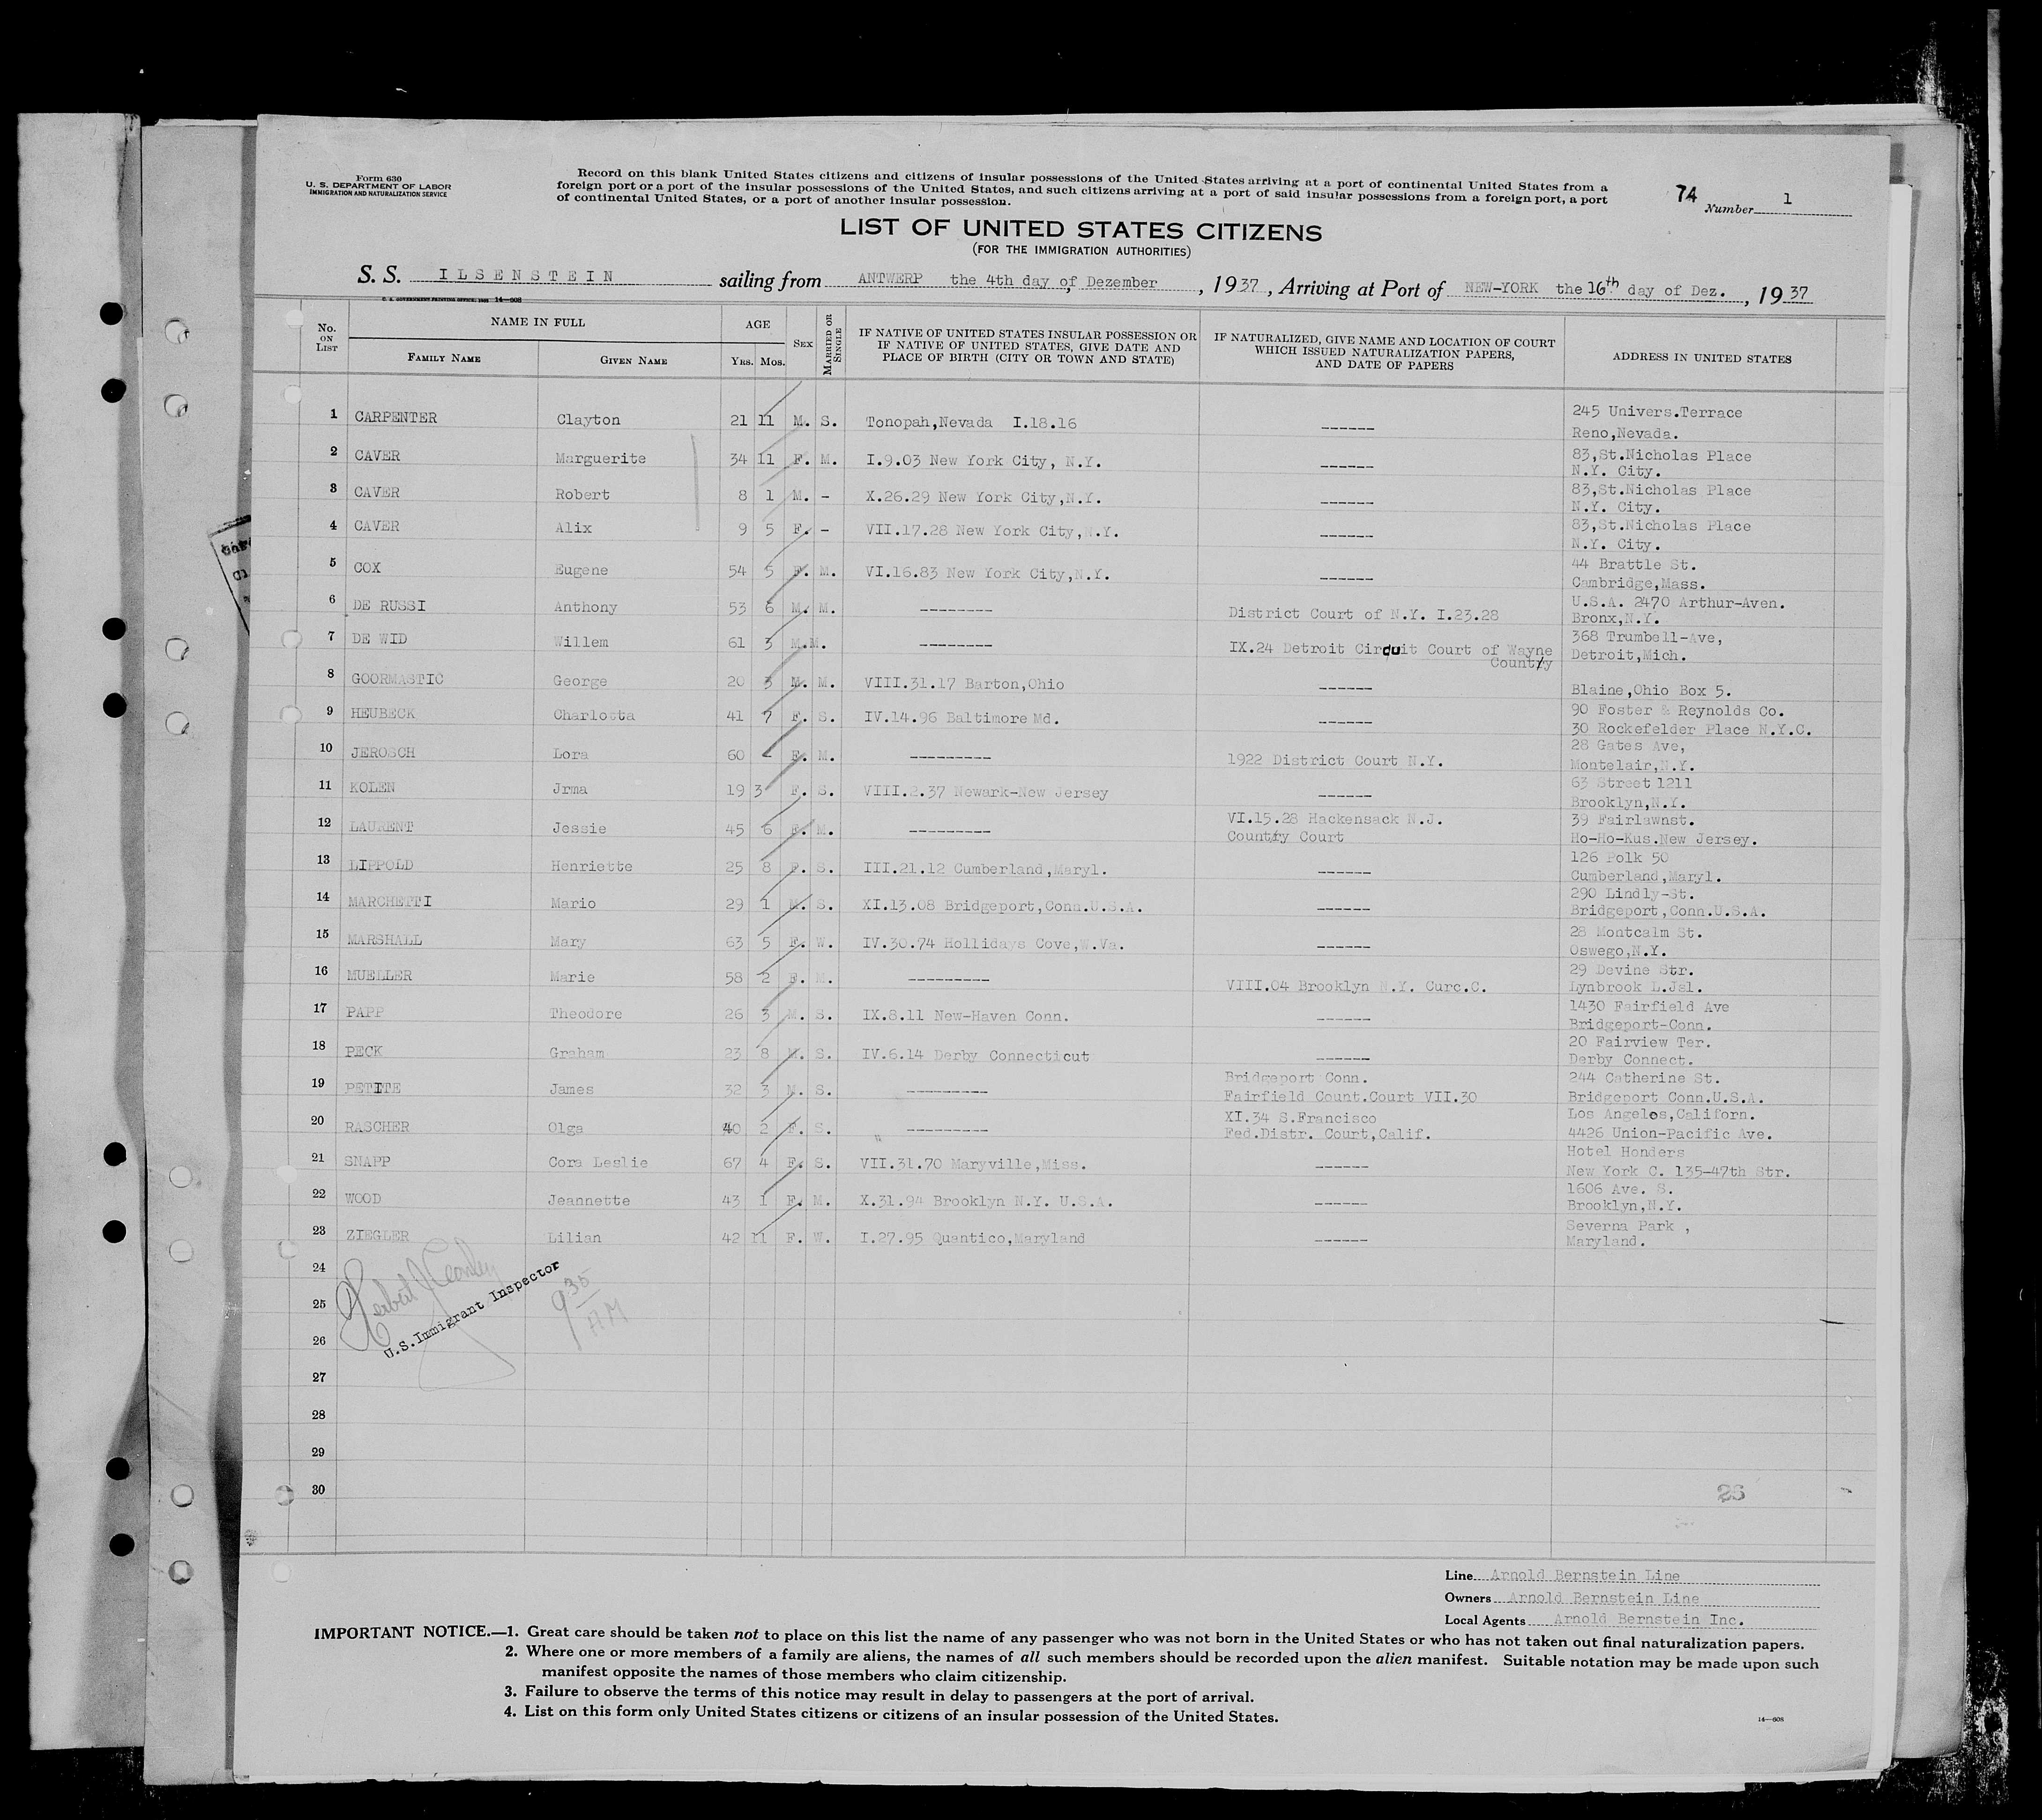 Form 630
U. S. DEPARTMENT OF LABOR
IMMIGRATION AND NATURALIZATION SERVICE
Record on this blank United States citizens and citizens of insular possessions of the United States arriving at a port of continental United States from a
foreign port or a port of the insular possessions of the United States, and such citizens arriving at a port of said insular possessions from a foreign port, a port
of continental United States, or a port of another insular possession.
74 Number 1
LIST OF UNITED STATES CITIZENS
(FOR THE IMMIGRATION AUTHORITIES)
S. S. ILSENSTEIN sailing from ANTWERP the 4th day of Dezember, 1937, Arriving at Port of NEW-YORK the 16th day of Dez., 1937
No. ON LIST
NAME IN FULL
FAMILY NAME GIVEN NAME
AGE
YRS. MOS.
SEX
MARRIED OR SINGLE
IF NATIVE OF UNITED STATES INSULAR POSSESSION OR
IF NATIVE OF UNITED STATES, GIVE DATE AND
PLACE OF BIRTH (CITY OR TOWN AND STATE)
IF NATURALIZED, GIVE NAME AND LOCATION OF COURT
WHICH ISSUED NATURALIZATION PAPERS,
AND DATE OF PAPERS
ADDRESS IN UNITED STATES
1 CARPENTER Clayton 21 11 M. S. Tonopah,Nevada I.18.16 ------ 245 Univers.Terrace
Reno,Nevada.
2 CAVER Marguerite 34 11 F. M. I.9.03 New York City, N.Y. ------ 83,St.Nicholas Place
N.Y. City.
3 CAVER Robert 8 1 M. - X.26.29 New York City,N.Y. ------ 83,St.Nicholas Place
N.Y. City.
4 CAVER Alix 9 5 F. - VII.17.28 New York City,N.Y. ------ 83,St.Nicholas Place
N.Y. City.
5 COX Eugene 54 5 F. M. VI.16.83 New York City,N.Y. ------ 44 Brattle St.
Cambridge,Mass.
6 DE RUSSI Anthony 53 6 M. M. -------- District Court of N.Y. I.23.28 U.S.A. 2470 Arthur-Aven.
Bronx,N.Y.
7 DE WID Willem 61 3 M.M. -------- IX.24 Detroit Circuit Court of Wayne 368 Trumbell-Ave,
County Detroit,Mich.
8 GOORMASTIC George 20 3 M. M. VIII.31.17 Barton,Ohio ------ Blaine,Ohio Box 5.
9 HEUBECK Charlotta 41 7 F. S. IV.14.96 Baltimore Md. ------ 90 Foster & Reynolds Co.
30 Rockefelder Place N.Y.C.
10 JEROSCH Lora 60 F. M. --------- 1922 District Court N.Y. 28 Gates Ave,
Montelair,N.Y.
11 KOLEN Jrma 19 3 F. S. VIII.2.37 Newark-New Jersey ------ 63 Street 1211
Brooklyn,N.Y.
12 LAURENT Jessie 45 6 F. M. --------- VI.15.28 Hackensack N.J. 39 Fairlawnst.
Country Court Ho-Ho-Kus.New Jersey.
13 LIPPOLD Henriette 25 8 F. S. III.21.12 Cumberland,Maryl. ------ 126 Polk 50
Cumberland,Maryl.
14 MARCHETTI Mario 29 1 M. S. XI.13.08 Bridgeport,Conn.U.S.A. ------ 290 Lindly-St.
Bridgeport,Conn.U.S.A.
15 MARSHALL Mary 63 5 F. W. IV.30.74 Hollidays Cove,W.Va. ------ 28 Montcalm St.
Oswego,N.Y.
16 MUELLER Marie 58 2 F. M. --------- VIII.04 Brooklyn N.Y. Curc.C. 29 Devine Str.
Lynbrook L.Jsl.
17 PAPP Theodore 26 3 M. S. IX.8.11 New-Haven Conn. ------ 1430 Fairfield Ave
Bridgeport-Conn.
18 PECK Graham 23 8 M. S. IV.6.14 Derby Connecticut ------ 20 Fairview Ter.
Derby Connect.
19 PETITE James 32 3 M. S. --------- Bridgeport Conn. 244 Catherine St.
Fairfield Count.Court VII.30 Bridgeport Conn.U.S.A.
20 RASCHER Olga 40 2 F. S. --------- XI.34 S.Francisco Los Angelos,Californ.
Fed.Distr. Court,Calif. 4426 Union-Pacific Ave.
21 SNAPP Cora Leslie 67 4 F. S. VII.31.70 Maryville,Miss. ------ Hotel Honders
New York C. 135-47th Str.
22 WOOD Jeannette 43 1 F. M. X.31.94 Brooklyn N.Y. U.S.A. ------ 1606 Ave. S.
Brooklyn,N.Y.
23 ZIEGLER Lilian 42 11 F. W. I.27.95 Quantico,Maryland ------ Severna Park ,
Maryland.
24
25
26
U.S.Immigrant Inspector
9 35 AM
27
28
29
30
Line Arnold Bernstein Line
Owners Arnold Bernstein Line
Local Agents Arnold Bernstein Inc.
IMPORTANT NOTICE.—1. Great care should be taken not to place on this list the name of any passenger who was not born in the United States or who has not taken out final naturalization papers.
2. Where one or more members of a family are aliens, the names of all such members should be recorded upon the alien manifest. Suitable notation may be made upon such
manifest opposite the names of those members who claim citizenship.
3. Failure to observe the terms of this notice may result in delay to passengers at the port of arrival.
4. List on this form only United States citizens or citizens of an insular possession of the United States.
14—608